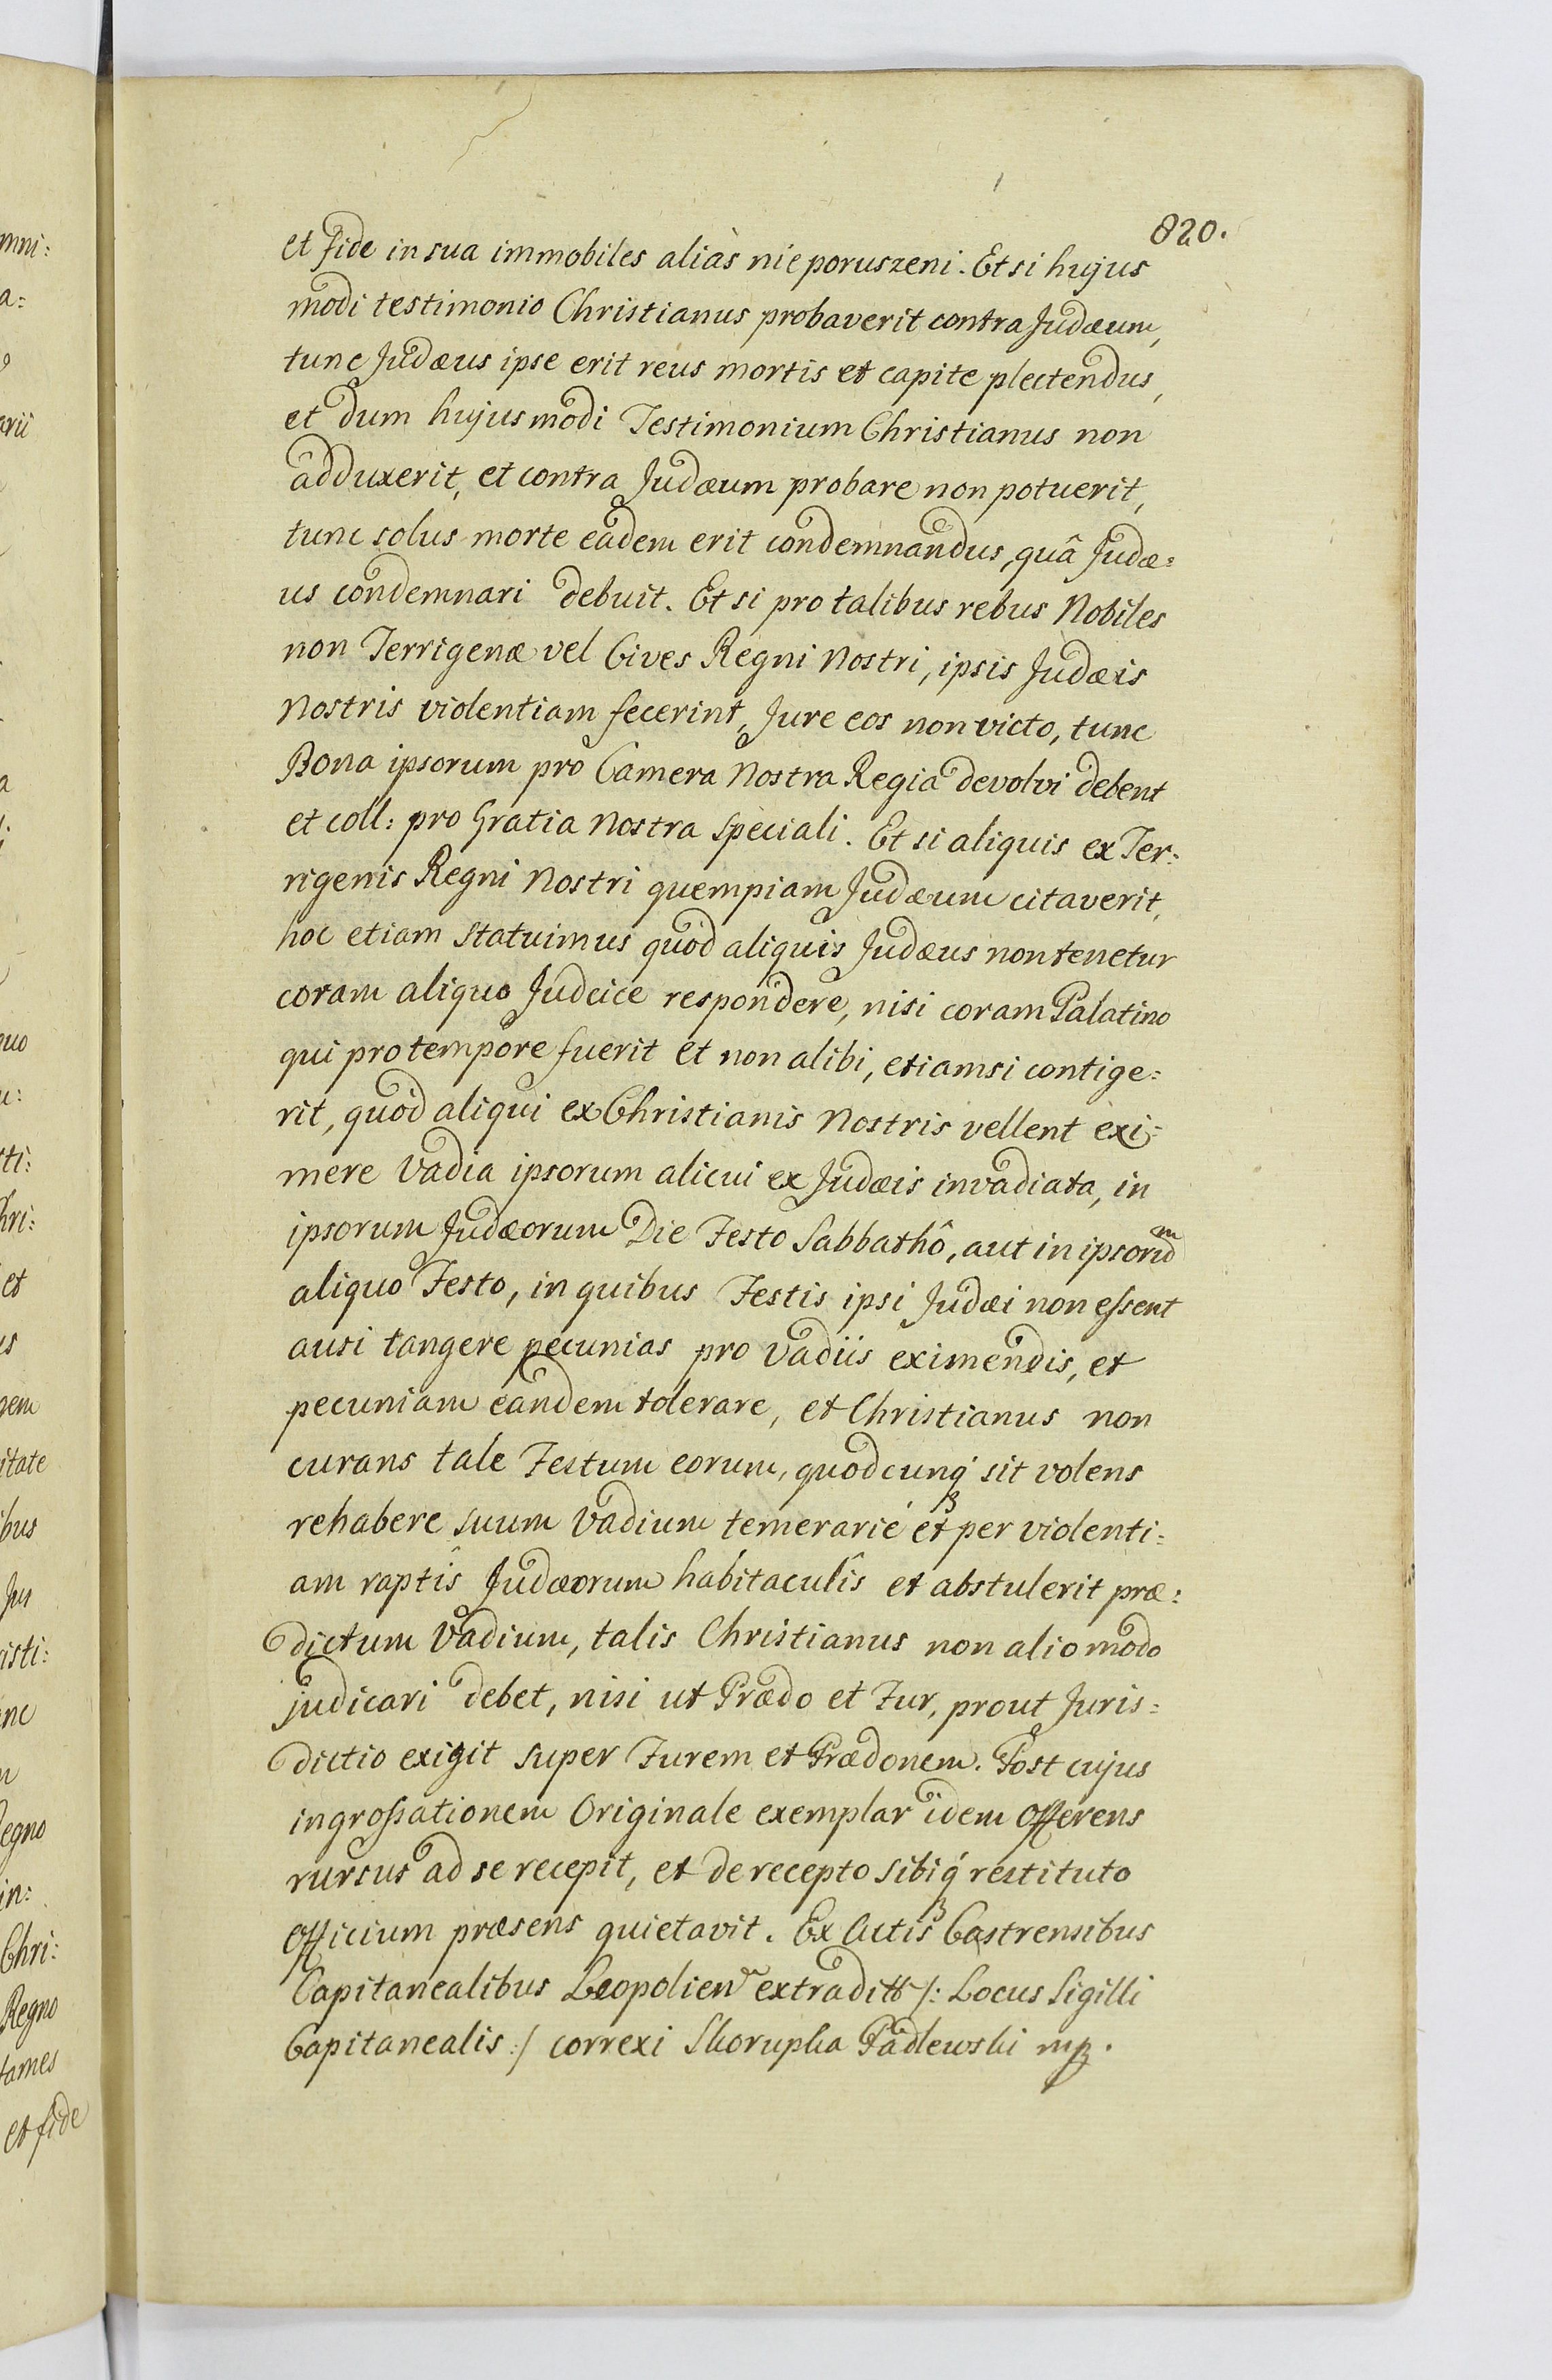 820.
et fide in sua immobiles aliàs nie poruszeni. Et si hujus
modi testimonio Christianus probaverit contra Judæum,
tunc Judæus ipse erit reus mortis et capite plectendus,
et dum hujusmodi Testimonium Christianus non
adduxerit, et contra Judæum probare non potuerit,
tunc solus morte eadem erit condemnandus, quâ Judæ=
us condemnari debuit. Et si pro talibus rebus Nobiles
non Terrigenæ vel Cives Regni Nostri, ipsis Judæis
Nostris violentiam fecerint, Jure eos non victo, tunc
Bona ipsorum pro Camera Nostra Regia devolvi debent
et coll: pro Gratia Nostra Speciali. Et si aliquis ex Ter:
rigenis Regni Nostri quempiam Judæum citaverit,
hoc etiam Statuimus quod aliquis Judæus non tenetur
coram aliquo Judcice respondere, nisi coram Palatino
qui pro tempore fuerit et non alibi, etiamsi contige=
rit, quod aliqui ex Christianis Nostris vellent exi=
mere Vadia ipsorum alicui ex Judæis invadiata, in
ipsorum Judæorum Die Festo Sabbathô, aut in ipsorum
aliquo Festo, in quibus Festis ipsi Judæi non essent
ausi tangere pecunias pro Vadiis eximendis, et
pecuniam eandem tolerare, et Christianus non
curans tale Festum eorum, quodcunq́ sit volens
rehabere suum Vadium temerarié et per violenti=
am raptîs Judæorum habitaculîs et abstulerit præ=
dictum Vadium, talis Christianus non alio modo
judicari debet, nisi ut Prædo et Fur, prout Juris=
dictio exigit super Furem et Prædonem. Post cujus
ingrossationem Originale exemplar idem Offerens
rursus ad se recepit, et de recepto sibiq́ restituto
Officium præsens quietavit. Ex Actis Castrensibus
Capitanealibus Leopolien extraditt /: Locus Sigilli
Capitanealis :/ correxi Skorupka Padlewski mp.
mni:
a:
arii
quo
u:
ti:
hri:
et
gem
itate
ibus
Jus
isti:
nc
Regno
in:
Chri:
Regno
tames
et fide